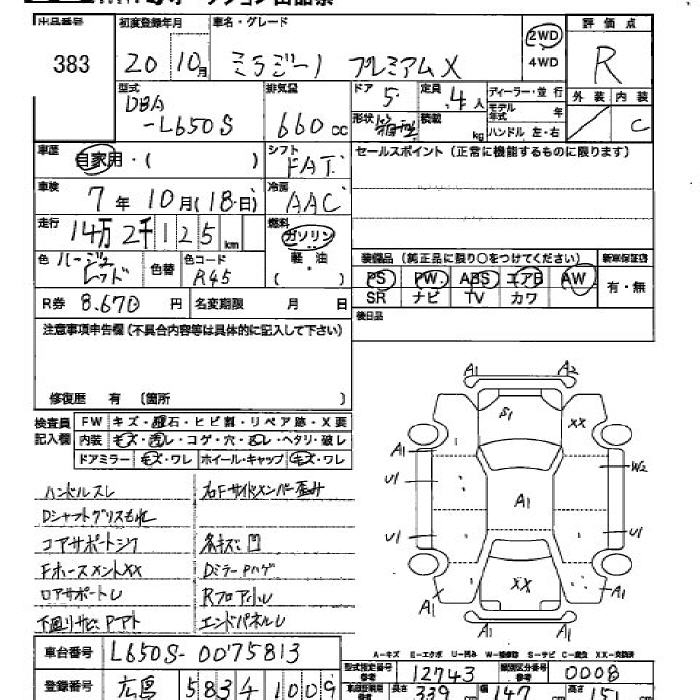 出品番号 初度登録年月 車名・グレード 評価点
383 20 10月 ミラジーノ プレミアムX 2WD 4WD R
型式 排気量 ドア 定員 ディーラー・並行 外装 内装
DBA -L650S 660cc 5 4人 モデル年式 年 C
形状 箱型 積載 kg ハンドル 左・右
車歴 自家用・( ) シフト FAT セールスポイント (正常に機能するものに限ります)
車検 7年10月(18・日) 冷房 AAC
走行 14万2千125km 燃料 ガソリン
色 色替 色コード R45 軽油 ( ・ )
装備品 (純正品に限り○をつけてください) 新車保証書
PS PW ABS エアB AW 有・無
SR ナビ TV カワ
R券 8.670円 名変期限 月 日
後日品
注意事項申告欄 (不具合内容等は具体的に記入して下さい)
修復歴 有 (箇所 )
検査員記入欄 FW キズ・飛石・ヒビ割・リペア跡・X要
内装 キズ・汚レ・コゲ・穴・ヘタリ・破レ
ドアミラー キズ・ワレ ホイール・キャップ キズ・ワレ
ハンドルスレ 右Fサイドメンバー歪み
Dシャフトグリスもれ
コアサポート 各キズ凹
XX Dミラーハゲ
下廻りサビ エンドパネル
A1 A2
S1 XX
A1 W2
U1 A1
U1 U1
XX
A1 A1
A-キズ E-エクボ U-凹み W-補修跡 S-サビ C-腐食 XX-交換済
車台番号 L650S-0075813
型式指定番号 参考 12743 類別区分番号 参考 0008
登録番号 広島 583 1009
長さ 339cm 幅 147cm 高さ 151cm